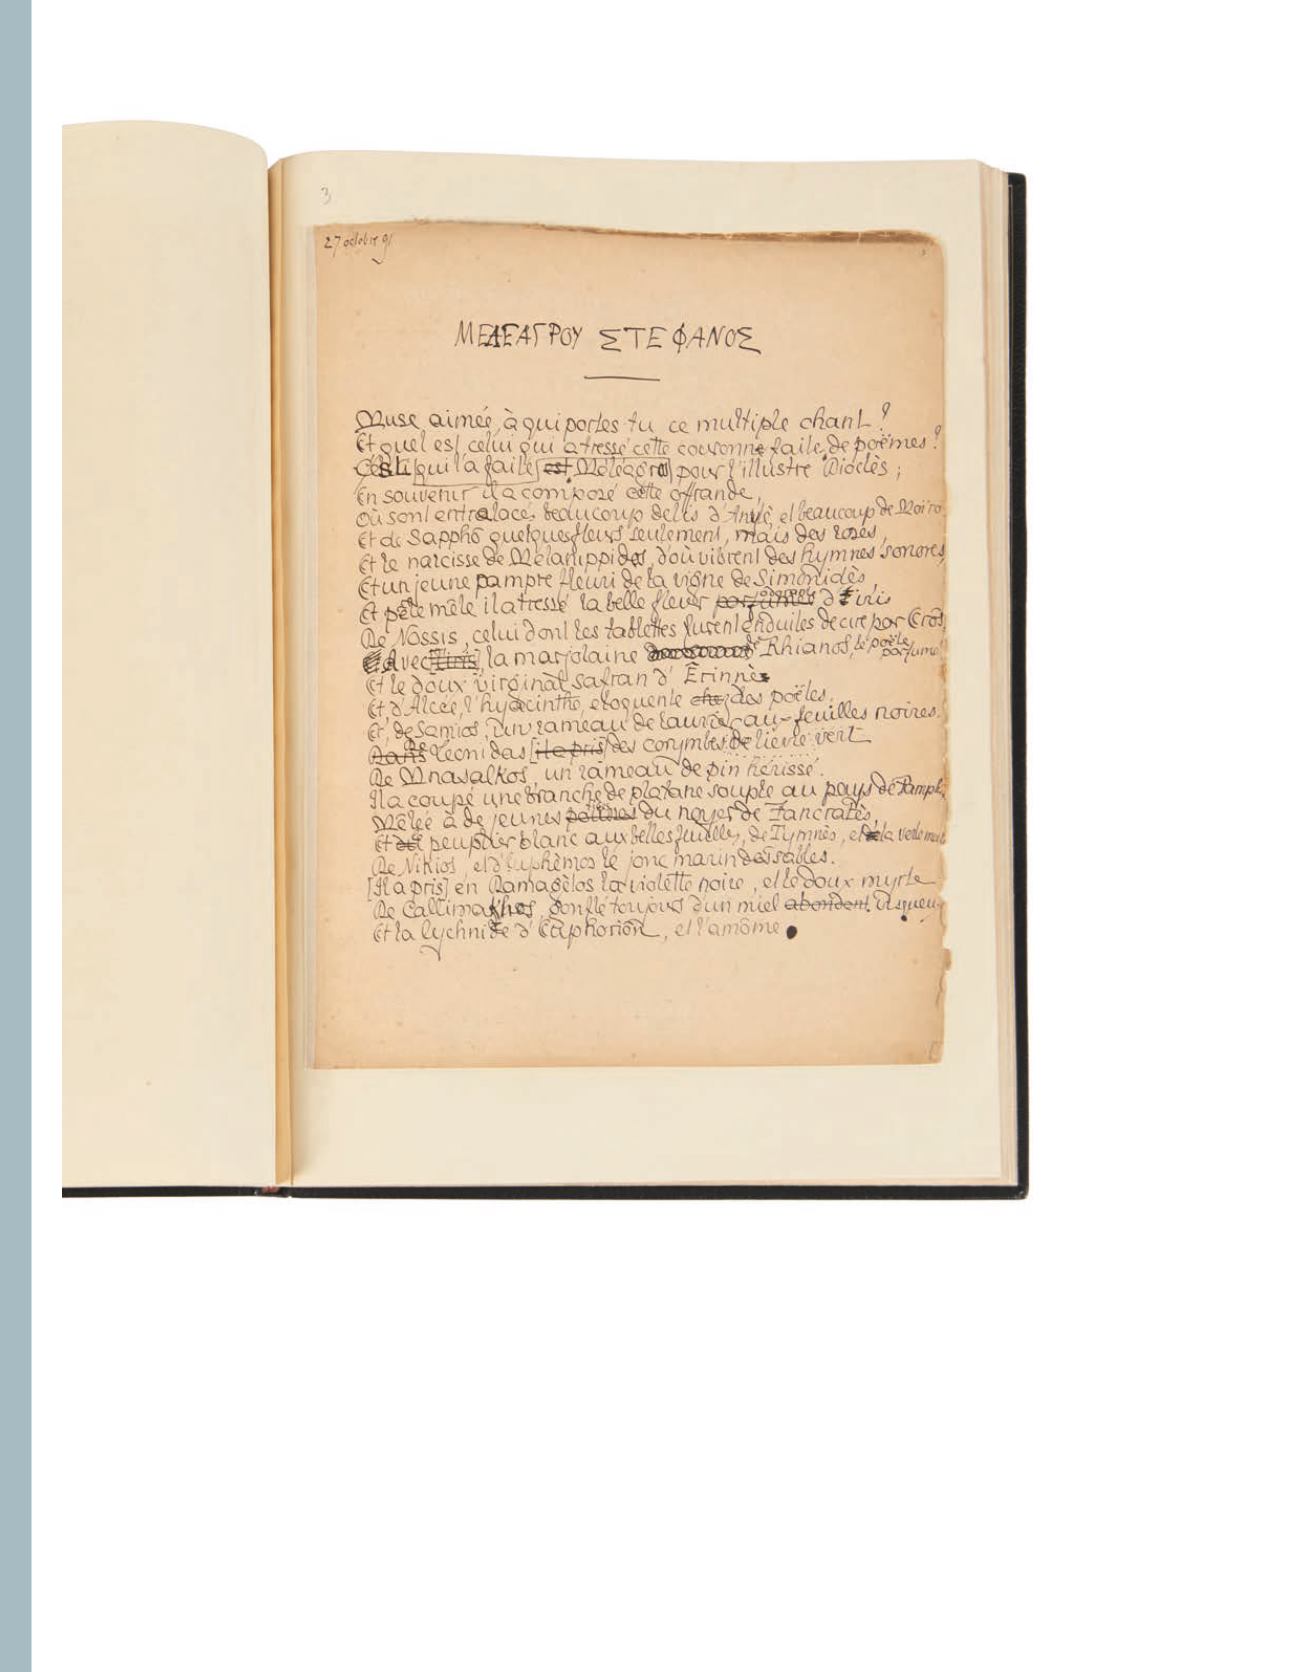 3
27 octobre 91
ΜΕΛΕΑΓΡΟΥ ΣΤΕΦΑΝΟΣ
Muse aimée, à qui portes-tu ce multiple chant ?
Et quel est celui qui a tressé cette couronne faite de poëmes ?
C'est [qui l'a faite] est Méléagros pour l'illustre Dioclès ;
En souvenir il a composé cette offrande,
Où sont entrelacés beaucoup de lis d'Anytè, et beaucoup de Moïro
Et de Sapphô quelques fleurs seulement, mais des roses,
Et le narcisse de Mélanippidès, d'où vibrent des hymnes sonores,
Et un jeune pampre fleuri de la vigne de Simonidès,
Et pêle mêle il a tressé la belle fleur parfumée d'iris
De Nossis, celui dont les tablettes furent enduites de cire par Erôs,
Avec l'iris, la marjolaine de Rhianos, le poëte parfumé
Et le doux virginal safran d'Erinnès
Et, d'Alcée, l'hyacinthe, éloquente chez des poëtes,
Et, de Samios, un rameau de laurier aux feuilles noires.
Dans De Leonidas [il a pris] des corymbes de lierre vert
De Mnasalkos, un rameau de pin hérissé.
Il a coupé une branche de platane souple au pays de Pamph.
Mêlée à de jeunes du noyer de Pancratès,
Et peuplier blanc aux belles feuilles, de Tymnès, et la verte
De Nikios, et d'Euphèmos le jonc marin des sables.
[Il a pris] en Damagètos la violette noire, et le doux myrte
De Callimakhos, gonflé toujours d'un miel abondant visqueux
Et la lychnide d'Euphorion, et l'amome